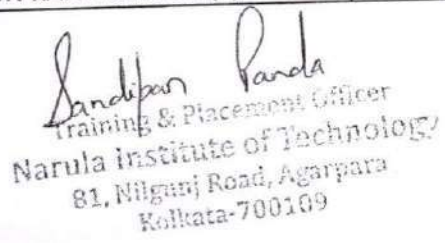 Sandipan Panda
Training & Placement Officer
Narula Institute of Technology
81, Nilgunj Road, Agarpara
Kolkata-700109